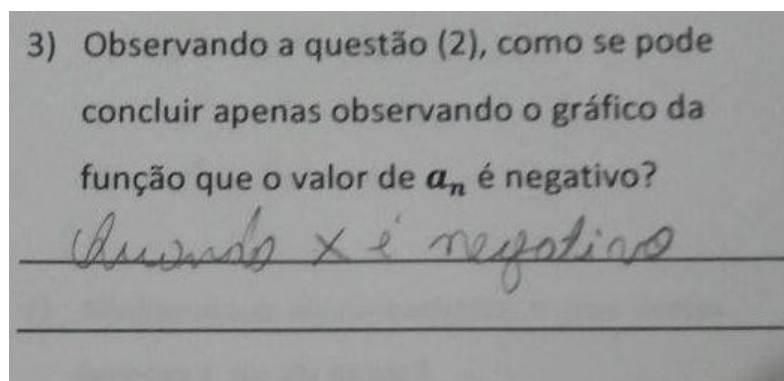 3) Observando a questão (2), como se pode
concluir apenas observando o gráfico da
função que o valor de aₙ é negativo?
Quando x é negativo